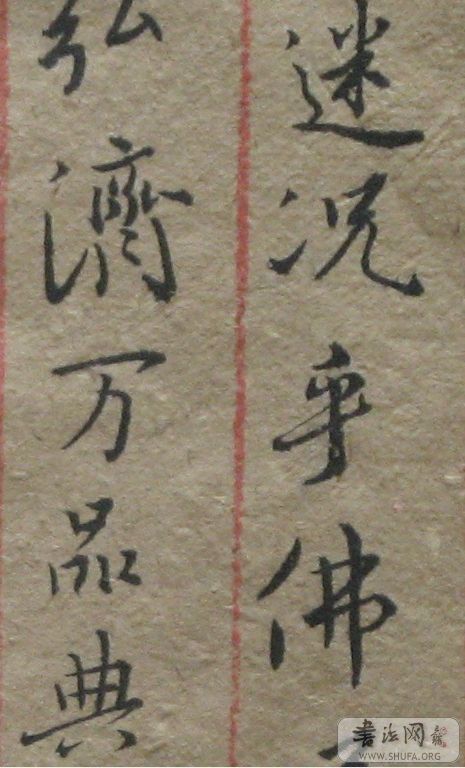 迷况乎佛
弘济万品典
书法网
WWW.SHUFA.ORG